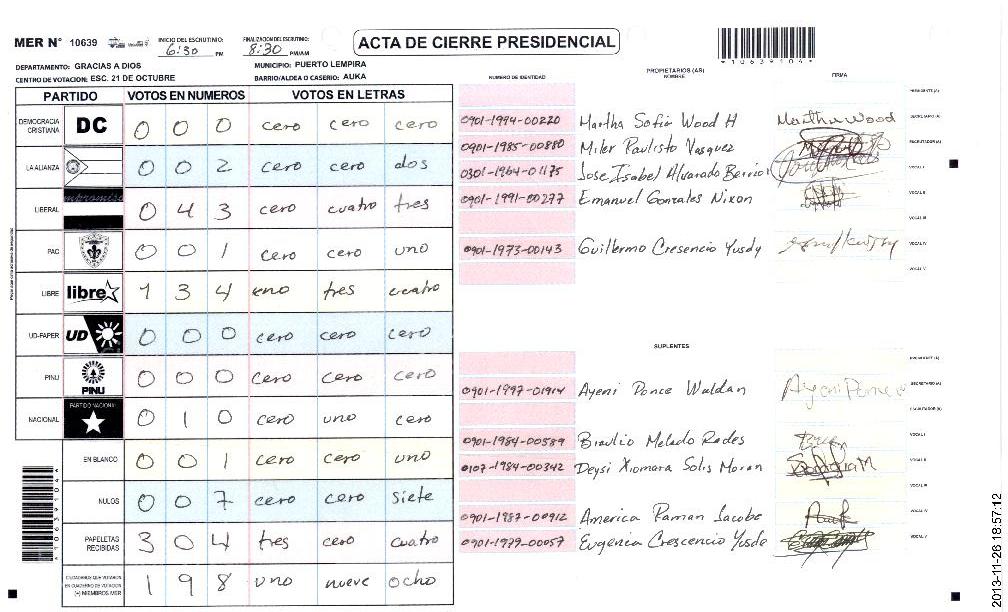 MER N° 10639
INICIO DEL ESCRUTINIO: 6:30 PM
FINALIZACION DEL ESCRUTINIO: 8:30 PM/AM
ACTA DE CIERRE PRESIDENCIAL
*10639104*
DEPARTAMENTO: GRACIAS A DIOS
MUNICIPIO: PUERTO LEMPIRA
CENTRO DE VOTACION: ESC. 21 DE OCTUBRE
BARRIO/ALDEA O CASERIO: AUKA
PARTIDO VOTOS EN NUMEROS VOTOS EN LETRAS
DEMOCRACIA CRISTIANA DC 0 0 0 cero cero cero
LA ALIANZA 0 0 2 cero cero dos
LIBERAL 0 4 3 cero cuatro tres
PAC 0 0 1 cero cero uno
LIBRE libre 1 3 4 uno tres cuatro
UD-FAPER UD 0 0 0 cero cero cero
PINU PINU 0 0 0 cero cero cero
NACIONAL PARTIDO NACIONAL 0 1 0 cero uno cero
EN BLANCO 0 0 1 cero cero uno
NULOS 0 0 7 cero cero siete
PAPELETAS RECIBIDAS 3 0 4 tres cero cuatro
CIUDADANOS QUE VOTARON EN CUADERNO DE VOTACION (+) MIEMBROS MER 1 9 8 uno nueve ocho
*10639104*
NUMERO DE IDENTIDAD
PROPIETARIOS (AS)
NOMBRE
FIRMA
PRESIDENTE (A)
0901-1994-00220 Martha Sofia Wood H Martha Wood SECRETARIO (A)
0901-1985-00880 Miler Paulisto Vasquez ESCRUTADOR (A)
0301-1964-01175 Jose Isabel Alvarado VOCAL I
0901-1991-00277 Emanuel Gonzales Nixon VOCAL II
VOCAL III
0901-1973-00143 Guillermo Cresencio Yusdy VOCAL IV
VOCAL V
SUPLENTES
PRESIDENTE (A)
0901-1997-01914 Ayeni Ponce Waldan Ayeni Ponce SECRETARIO (A)
ESCRUTADOR (A)
0901-1984-00589 Braulio Melado Rades VOCAL I
0107-1984-00342 Deysi Xiomara Solis Moran VOCAL II
VOCAL III
0901-1987-00912 America Raman Jacobo VOCAL IV
0901-1979-00057 Eugenia Crescencio Yusde VOCAL V
2013-11-26 18:57:12